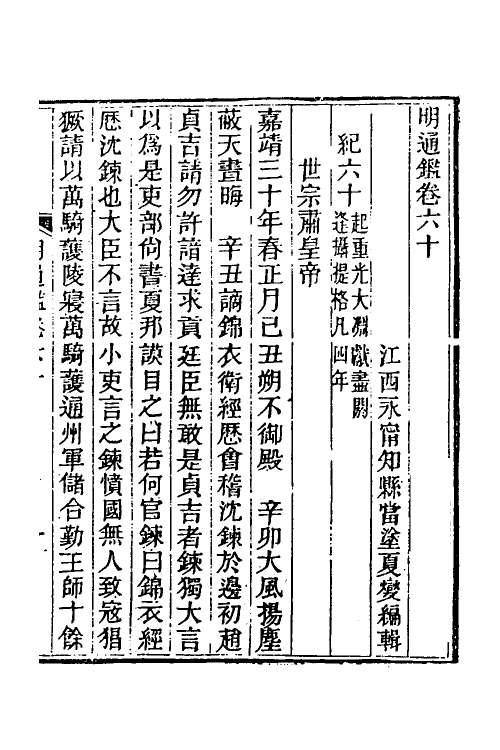 明通鑑卷六十
江西永甯知縣當塗夏燮編輯
紀六十
起重光大淵獻盡閼
逢攝提格凡四年
世宗肅皇帝
嘉靖三十年春正月己丑朔不御殿　辛卯大風揚塵
蔽天晝晦　辛丑謫錦衣衛經厯會稽沈鍊於邊初趙
貞吉請勿許諳達求貢廷臣無敢是貞吉者鍊獨大言
以爲是吏部尙書夏邦謨目之曰若何官鍊曰錦衣經
厯沈鍊也大臣不言故小吏言之鍊憤國無人致寇猖
獗請以萬騎護陵寢萬騎護通州軍儲合勤王師十餘